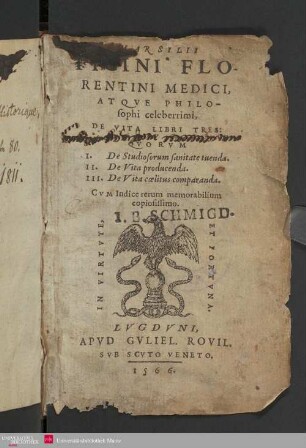 MARSILII
FICINI FLO-
RENTINI MEDICI,
ATQVE PHILO-
sophi celeberrimi,
DE VITA LIBRI TRES:
QVORVM
I. De Studiosorum sanitate tuenda.
II. De Vita producenda.
III. De Vita cœlitus comparanda.
CVM Indice rerum memorabilium
copiosissimo.
I. B. SCHMICD-
IN VIRTVTE,
ET FORTVNA.
LVGDVNI,
APVD GVLIEL. ROVIL.
SVB SCVTO VENETO.
1566.
80.
1811.